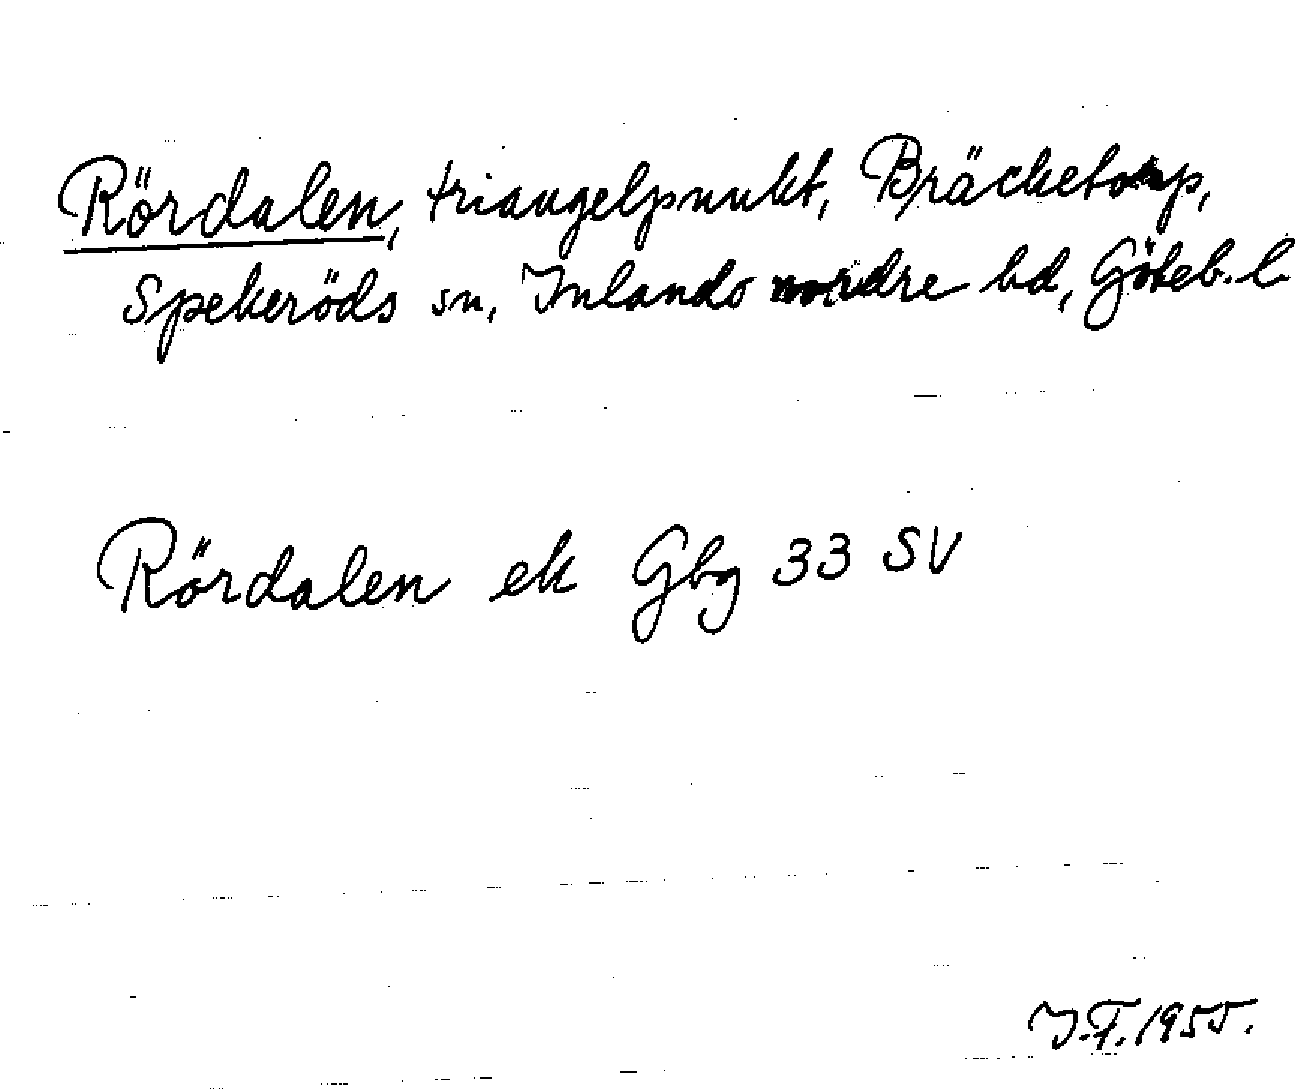 Rördalen, triangelpunkt, Bräcketorp,
Spekeröds sn, Inlands nordre hd, Göteb. l
Rördalen ek Gbg 33 SV
I.F. 1955.